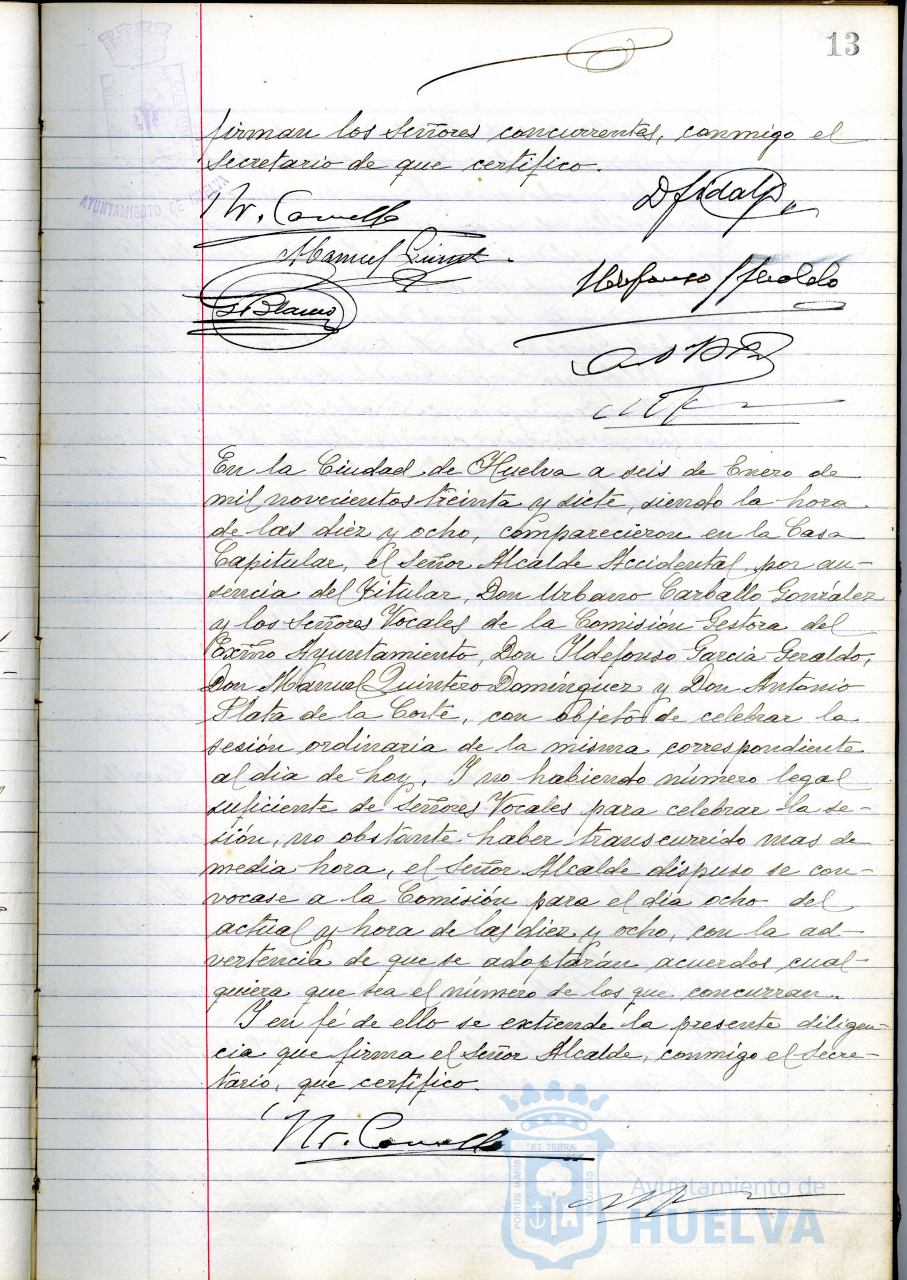 13
firman los Señores concurrentes, conmigo el
Secretario de que certifico.
AYUNTAMIENTO DE HUELVA
D Fidalgo
Manuel
Ildefonso Geraldo
Blanco
En la Ciudad de Huelva a seis de Enero de
mil novecientos treinta y siete, siendo la hora
de las diéz y ocho, comparecieron en la Casa
Capitular, el Señor Alcalde Accidental, por au-
sencia del Titular, Don Urbano Carballo González
y los Señores Vocales de la Comisión Gestora del
Excmo Ayuntamiento, Don Ildefonso Garcia Geraldo,
Don Manuel Quintero Domínguez y Don Antonio
Plata de la Corte, con objeto de celebrar la
sesión ordinaria de la misma correspondiente
al dia de hoy. Y no habiendo número legal
suficiente de Señores Vocales para celebrar la se-
sión, no obstante haber transcurrido mas de
media hora, el Señor Alcalde dispuso se con-
vocase a la Comisión para el dia ocho del
actual y hora de las diez y ocho, con la ad-
vertencia de que se adoptarán acuerdos cual-
quiera que sea el número de los que concurran.
Y en fé de ello se extiende la presente diligen-
cia que firma el Señor Alcalde, conmigo el Secre-
tario, que certifico.
PORTUS MARIS ET TERRAE CUSTODIA
Ayuntamiento de
HUELVA